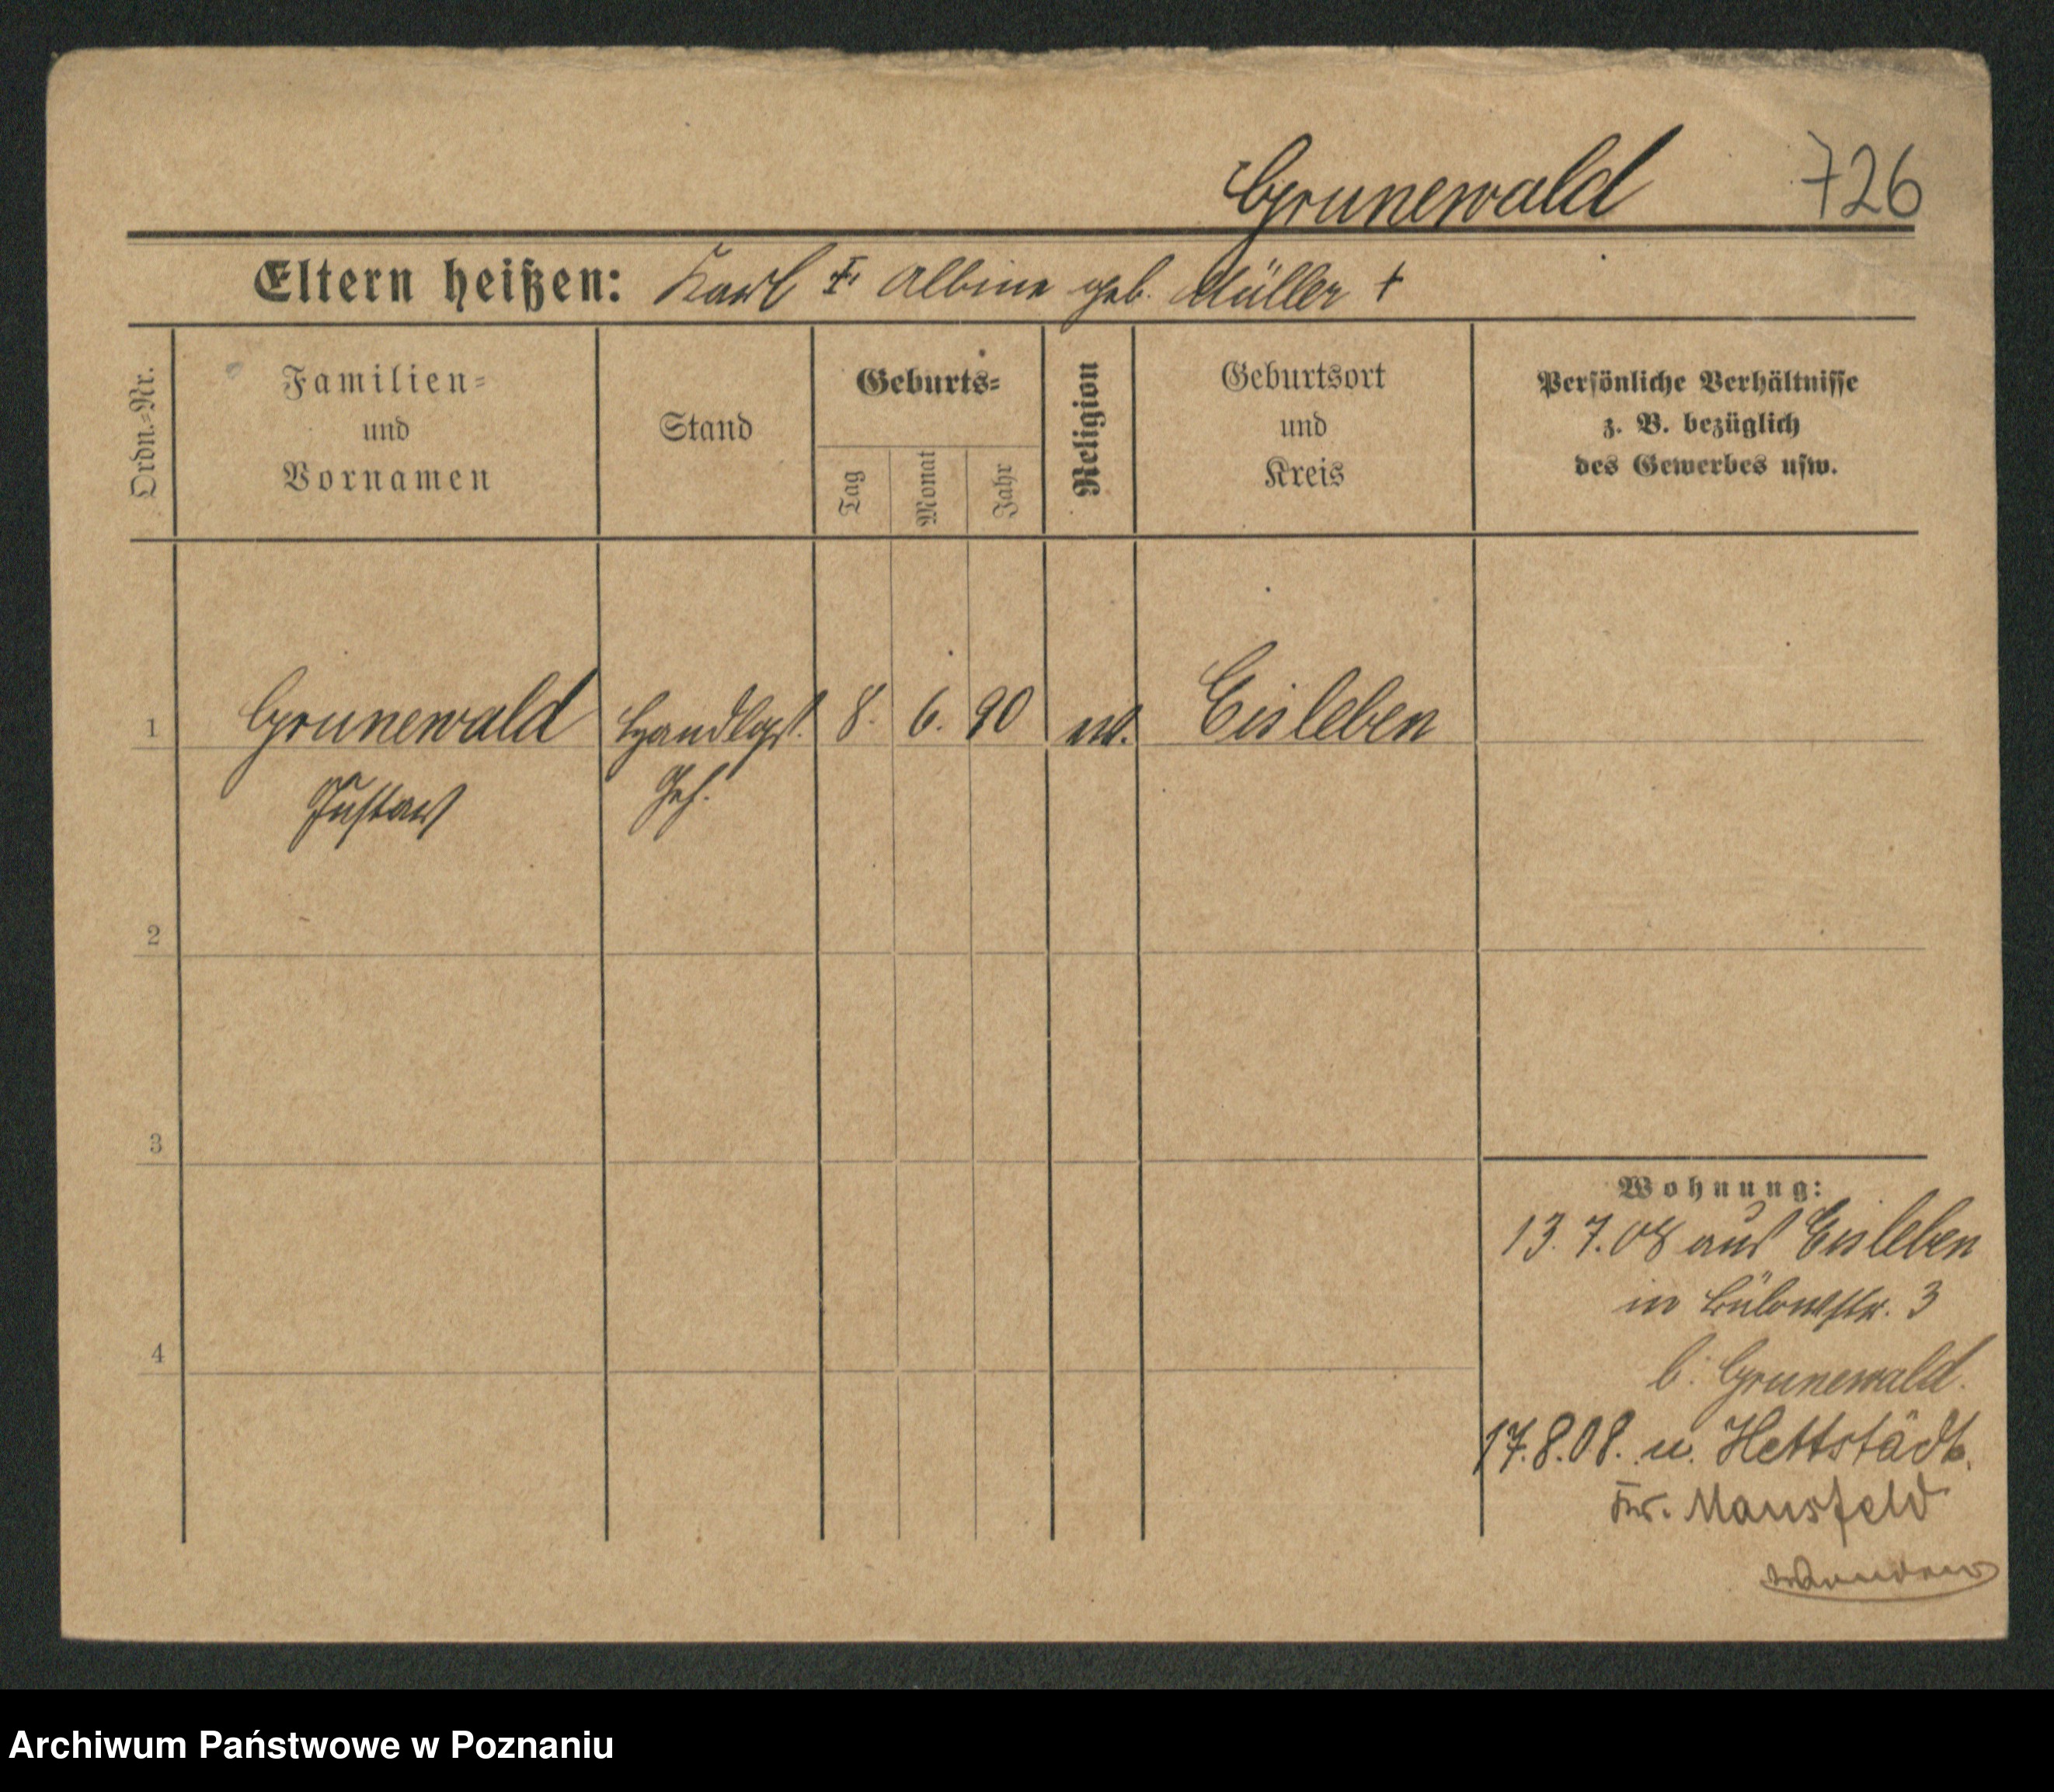 Grunewald 726
Eltern heißen: Karl u. Albine geb. Müller +
Ordn.=Nr.
Familien=
und
Vornamen
Stand
Geburts=
Tag
Monat
Jahr
Religion
Geburtsort
und
Kreis
Persönliche Verhältnisse
z. B. bezüglich
des Gewerbes usw.
1 Grunewald Handlgs. 8. 6. 90 ev. Eisleben
Gustav Geh.
2
3
Wohnung:
13.7.08 aus Eisleben
in Bülowstr. 3
4
b. Grunewald.
17.8.08. n. Hettstädt,
Kr. Mansfeld
Archiwum Państwowe w Poznaniu